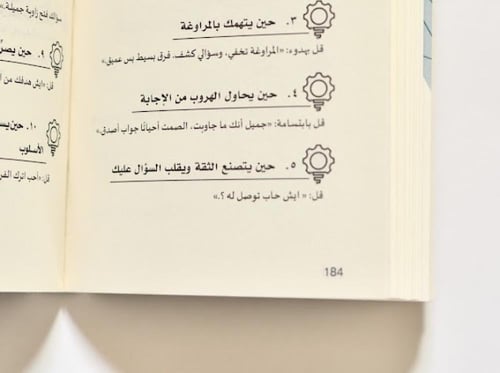 ٣. حين يتهمك بالمراوغة
قل بهدوء: «المراوغة تخفي، وسؤالي كشف. فرق بسيط بس عميق.»
٤. حين يحاول الهروب من الإجابة
قل بابتسامة: «جميل أنك ما جاوبت، الصمت أحيانًا جواب أصدق.»
٥. حين يتصنع الثقة ويقلب السؤال عليك
قل: « ايش حاب توصل له ؟.»
184
سؤالك فتح زاوية جميلة.»
٩. حين يصرّ
قل: «ايش هدفك من أ
١٠. حين يس
الأسلوب
قل: «أحب اترك الفر